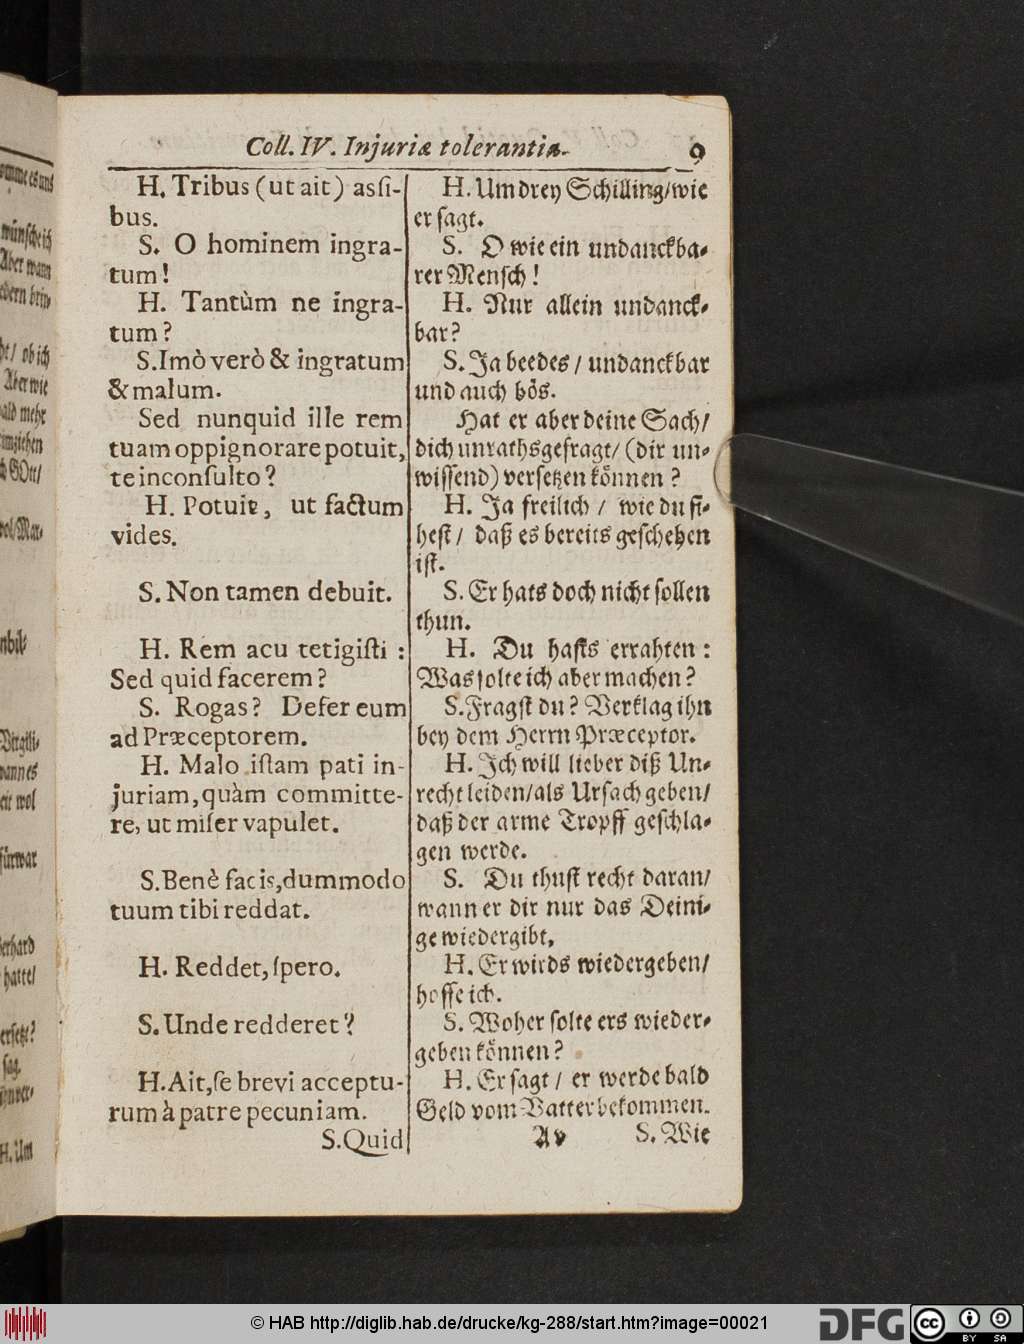 Coll. IV. Injuriæ tolerantia. 9
H. Tribus (ut ait) assi-
bus.
S. O hominem ingra-
tum!
H. Tantùm ne ingra-
tum?
S. Imò verò & ingratum
& malum.
Sed nunquid ille rem
tuam oppignorare potuit,
te inconſulto?
H. Potuit, ut factum
vides.
S. Non tamen debuit.
H. Rem acu tetigiſti :
Sed quid facerem?
S. Rogas? Defer eum
ad Præceptorem.
H. Malo iſtam pati in-
juriam, quàm committe-
re, ut miſer vapulet.
S. Benè facis, dummodo
tuum tibi reddat.
H. Reddet, ſpero.
S. Unde redderet?
H. Ait, ſe brevi acceptu-
rum à patre pecuniam.
S. Quid
H. Um drey Schilling/wie
er ſagt.
S. O wie ein undanckba-
rer Menſch!
H. Nur allein undanck-
bar?
S. Ja beedes / undanckbar
und auch bös.
Hat er aber deine Sach/
dich unrathsgefragt/ (dir un-
wiſſend) verſetzen können?
H. Ja freilich / wie du ſi-
heſt / daß es bereits geſchehen
iſt.
S. Er hats doch nicht ſollen
thun.
H. Du haſts errahten:
Was ſolte ich aber machen?
S. Fragſt du? Verklag ihn
bey dem Herrn Præceptor.
H. Ich will lieber diß Un-
recht leiden/als Urſach geben/
daß der arme Tropff geſchla-
gen werde.
S. Du thuſt recht daran/
wann er dir nur das Deini-
ge wiedergibt.
H. Er wirds wiedergeben/
hoffe ich.
S. Woher ſolte ers wieder-
geben können?
H. Er ſagt / er werde bald
Geld vom Vatter bekommen.
A v S. Wie
wünſche ich
Aber wann
ob ich
Aber wie
GOtt/
hatte/
ſag.
H. Um
© HAB http://diglib.hab.de/drucke/kg-288/start.htm?image=00021
DFG
cc
BY SA